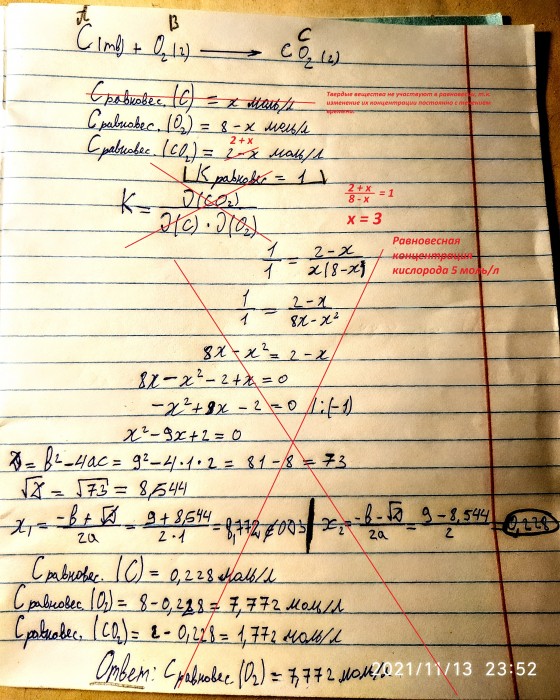 A B C
C(тв) + O₂(г) ⟶ CO₂(г)
Сравновес.(C) = x моль/л
Твердые вещества не участвуют в равновесии, т.к.
изменение их концентрации постоянно с течением
времени.
Сравновес.(O₂) = 8 - x моль/л
2 + x
Сравновес.(CO₂) = 2 - x моль/л
Kравновес = 1
K = ∂(CO₂) / ∂(C) · ∂(O₂)
2 + x / 8 - x = 1
x = 3
Равновесная
концентрация
кислорода 5 моль/л
1/1 = 2-x / x(8-x)
1/1 = 2-x / 8x-x²
8x - x² = 2 - x
8x - x² - 2 + x = 0
-x² + 9x - 2 = 0 | : (-1)
x² - 9x + 2 = 0
D = b² - 4ac = 9² - 4·1·2 = 81 - 8 = 73
√D = √73 = 8,544
x₁ = -b + √D / 2a = 9 + 8,544 / 2·1 = 8,772 x₂ = -b - √D / 2a = 9 - 8,544 / 2 = 0,228
Сравновес.(C) = 0,228 моль/л
Сравновес.(O₂) = 8 - 0,228 = 7,772 моль/л
Сравновес.(CO₂) = 2 - 0,228 = 1,772 моль/л
Ответ: Сравновес.(O₂) = 7,772 моль/л
2021/11/13 23:52